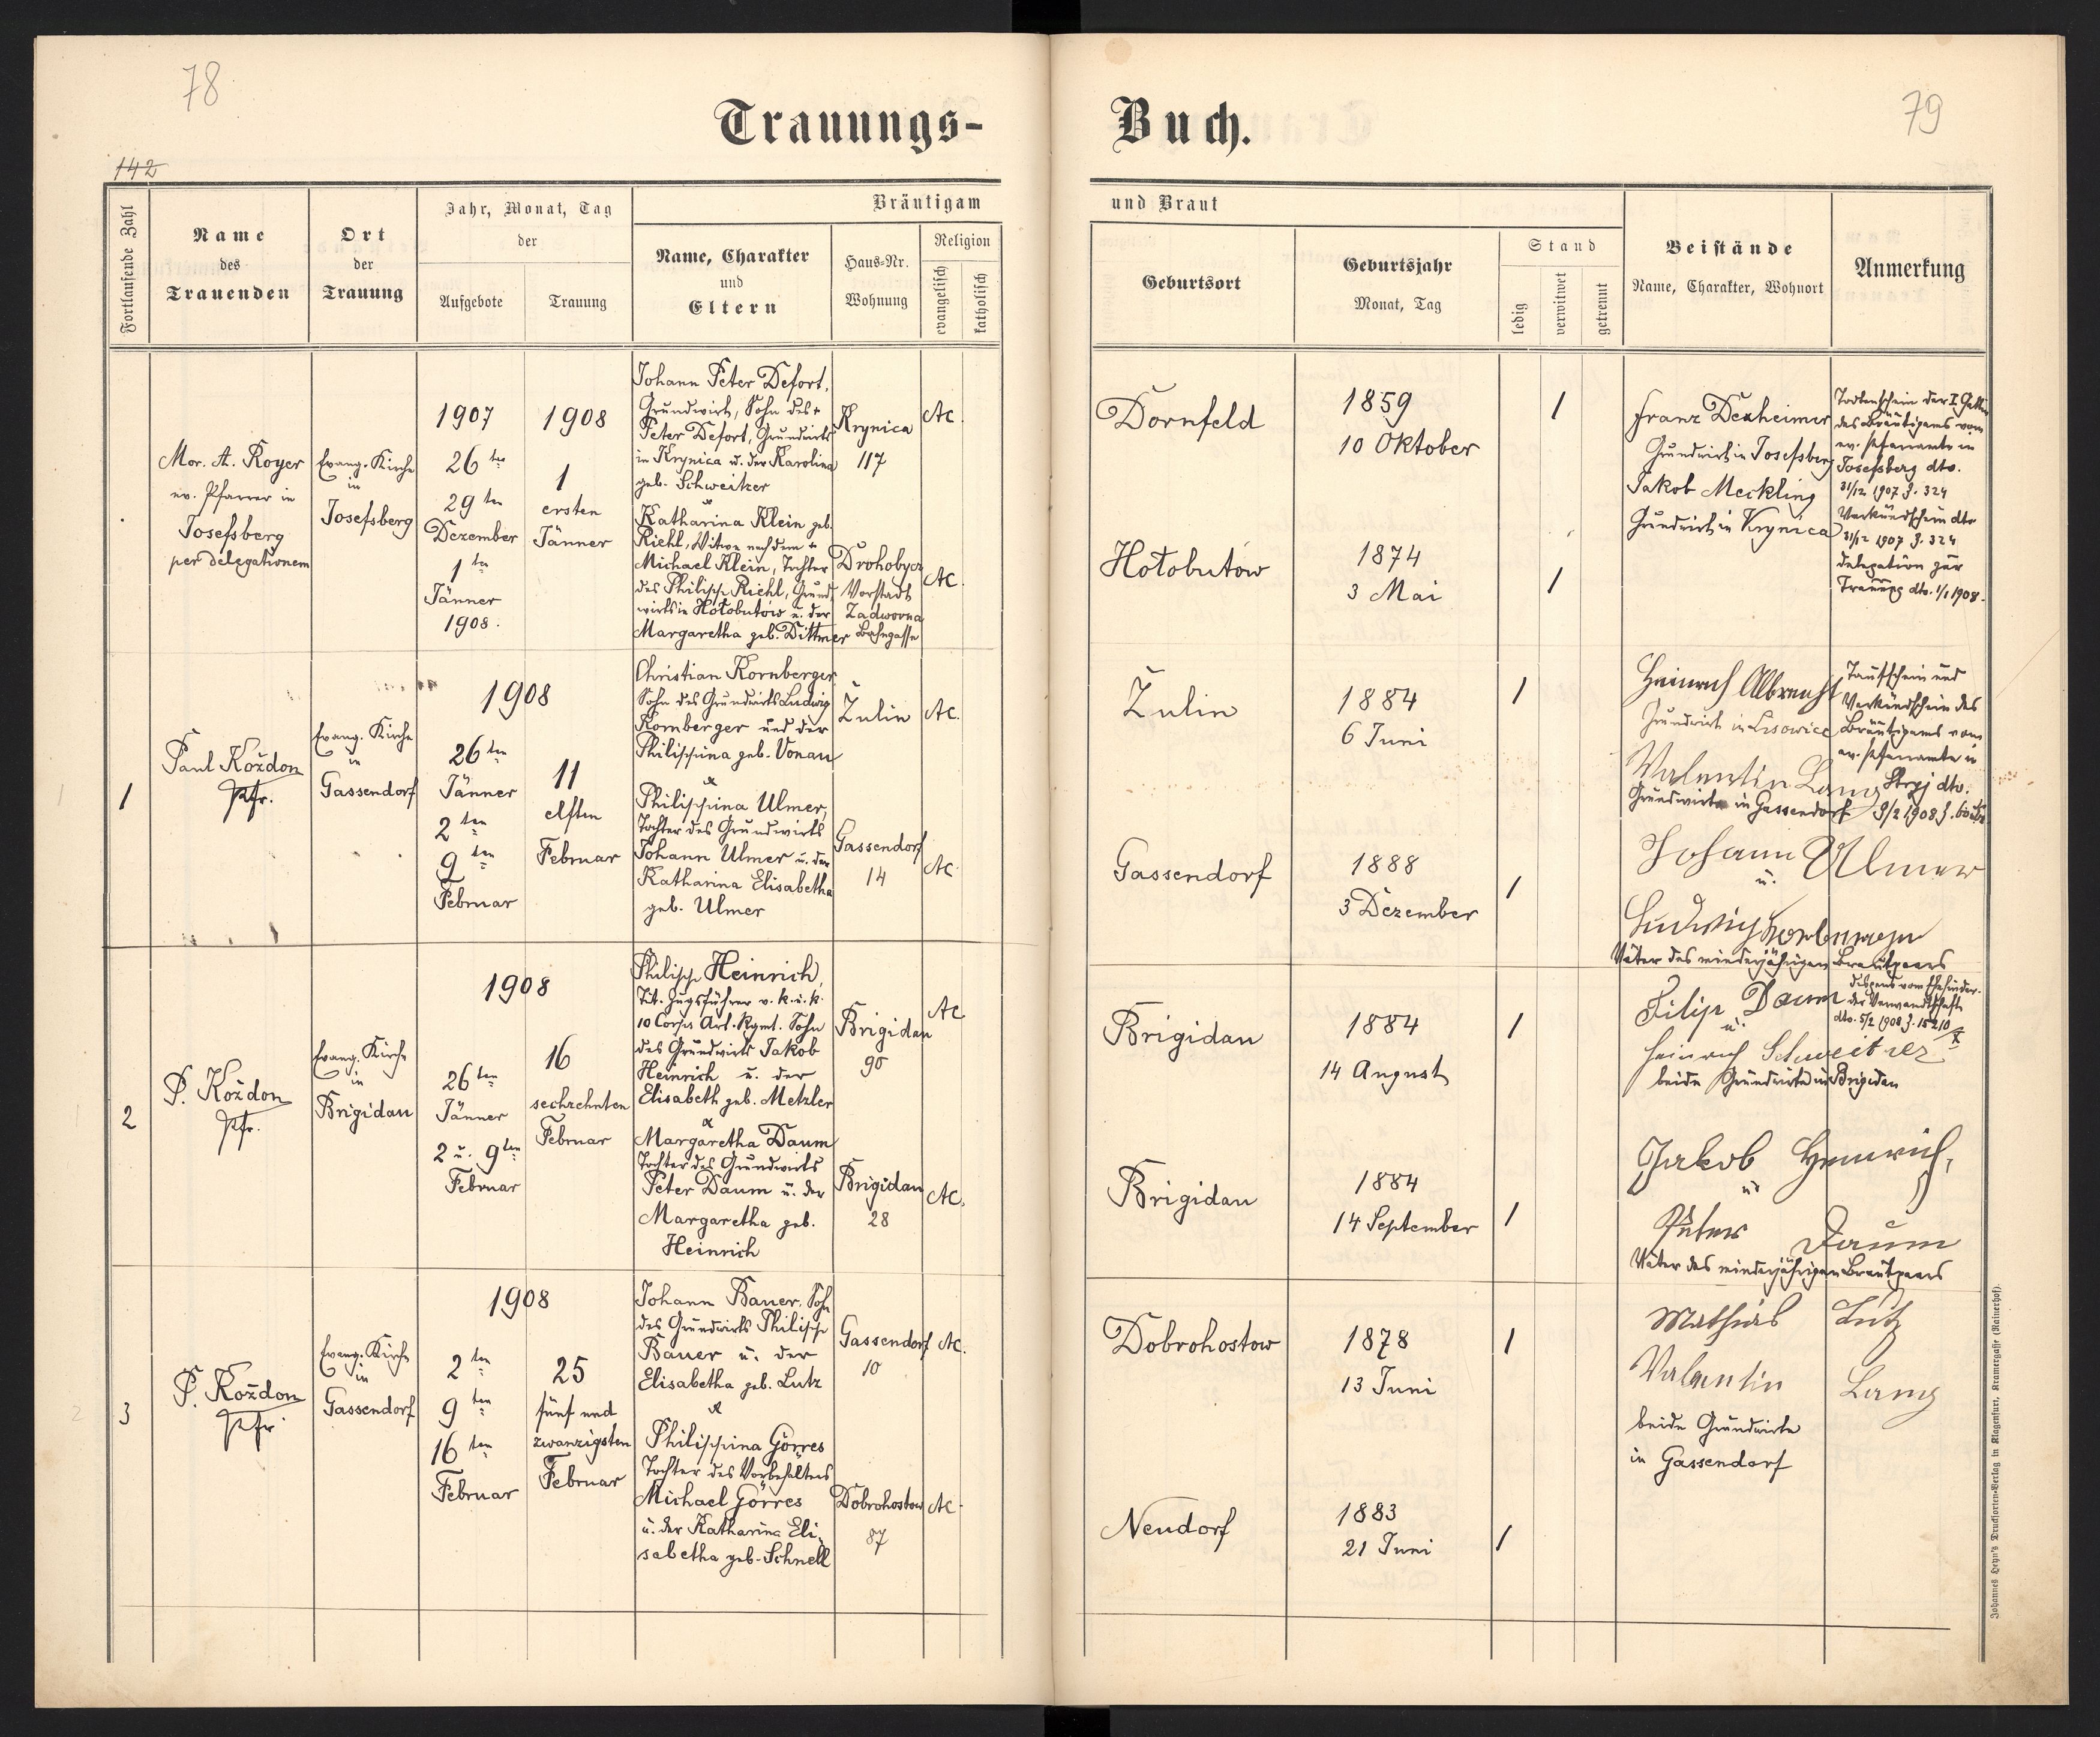 78
Trauungs-
142
Fortlaufende Zahl
Name
des
Trauenden
Ort
der
Trauung
Jahr, Monat, Tag
der
Aufgebote
Trauung
Bräutigam
Name, Charakter
und
Eltern
Haus-Nr.
Wohnung
Religion
evangelisch
katholisch
Mor. A. Royer
ev. Pfarrer in
Josefsberg
per delegationem
Evang. Kirche
in
Josefsberg
1907
26 ten
29 ten
Dezember
1 ten
Jänner
1908.
1908
1
ersten
Jänner
Johann Peter Defort,
Grundwirt, Sohn des +
Peter Defort, Grundwirts
in Krynica u. der Karolina
geb. Schweitzer
x
Katharina Klein geb.
Riehl, Witwe nach dem +
Michael Klein, Tochter
des Philipp Riehl, Grund
wirts in Hołobutów u. der
Margaretha geb. Dittmer
Krynica
117
Drohobycz
Vorstadt
Zadworna
Bahngasse
AC.
AC.
1
Paul Kożdon
Pfr.
Evang. Kirche
in
Gassendorf
1908
26 ten
Jänner
2 ten
9 ten
Februar
11
elften
Februar
Christian Kornberger,
Sohn des Grundwirts Ludwig
Kornberger und der
Philippina geb. Vonau
x
Philippina Ulmer,
Tochter des Grundwirts
Johann Ulmer u. der
Katharina Elisabetha
geb. Ulmer
Zulin
Gassendorf
14
AC.
AC.
2
P. Kożdon
Pfr.
Evang. Kirche
in
Brigidau
1908
26 ten
Jänner
2 u. 9 ten
Februar
16
sechzehnten
Februar
Philipp Heinrich,
Tit. Zugsführer v. k. u. k.
10 Corps Art. Rgmt. Sohn
des Grundwirts Jakob
Heinrich u. der
Elisabeth geb. Metzler
x
Margaretha Daum
Tochter des Grundwirts
Peter Daum u. der
Margaretha geb.
Heinrich
Brigidau
90
Brigidau
28
AC
AC.
3
P. Kożdon
Pfr.
Evang. Kirche
in
Gassendorf
1908
2 ten
9 ten
16 ten
Februar
25
fünf und
zwanzigsten
Februar
Johann Bauer, Sohn
des Grundwirts Philipp
Bauer u. der
Elisabetha geb. Lutz
x
Philippina Görres
Tochter des Vorbehälters
Michael Görres
u. der Katharina Eli-
sabetha geb. Schnell
Gassendorf
10
Dobrohostow
87
AC.
AC.
79
Buch.
und Braut
Geburtsort
Geburtsjahr
Monat, Tag
Stand
ledig
verwitwet
getrennt
Beistände
Name, Charakter, Wohnort
Anmerkung
Dornfeld
1859
10 Oktober
1
Hołobutów
1874
3 Mai
1
Franz Dexheimer
Grundwirt in Josefsberg
Jakob Meckling
Grundwirt in Krynica
Todtenschein der I Gattin
des Bräutigams vom
ev. Pfarramte in
Josefsberg dto.
31/12 1907 Z. 324
Verkündschein dto
31/12 1907 Z. 324
Delegation zur
Trauung dto. 1/1 1908.
Zulin
1884
6 Juni
1
Gassendorf
1888
3 Dezember
1
Heinrich Albrecht
Grundwirt in Lisowice
Valentin Lang
Grundwirte in Gassendorf
Johann Ulmer
u.
Ludwig
Väter des minderjährigen Brautpaares
Taufschein und
Verkündschein des
Bräutigams vom
ev. Pfarramte in
Stryj dto.
9/2 1908 Z.
Brigidau
1884
14 August
1
Brigidau
1884
14 September
1
Filip Daum
u.
Heinrich Schweitzer
beide Grundwirte in Brigidau
Jakob Heinrich,
u.
Peter Daum
Väter des minderjährigen Brautpaares
Dispens vom Ehehinder.
der Verwandtschaft
dto. 5/2 1908 Z. 15210
Dobrohostow
1878
13 Juni
1
Neudorf
1883
21 Juni
1
Mathias Lutz
Valentin Lang
beide Grundwirte
in Gassendorf
Johannes Heyn's Drucksorten-Verlag in Klagenfurt, Kramergasse (Rainerhof).